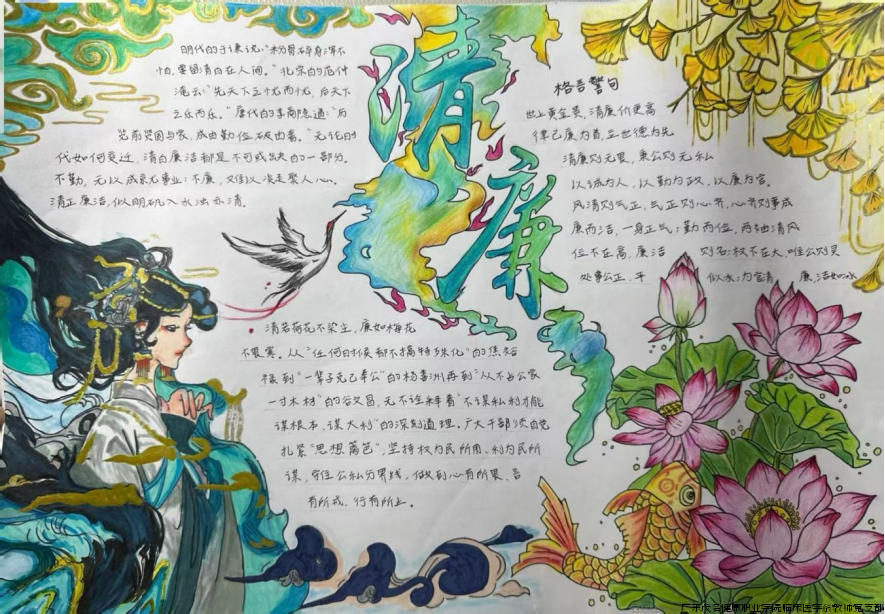 清廉
明代的于谦说:“粉骨碎身浑不
怕,要留清白在人间。”北宋的范仲
淹云“先天下之忧而忧,后天下
之乐而乐。”唐代的李商隐道:“历
览前贤国与家,成由勤俭破由奢。”无论时
代如何变迁,清白廉洁都是不可或缺的一部分。
不勤,无以成就事业;不廉,又何以凝聚人心。
清正廉洁,似明矾入水浊亦清。
格言警句
世上黄金贵,清廉价更高
律己廉为首,立世德为先
清廉则无畏,秉公则无私
以诚为人,以勤为政,以廉为官。
风清则气正,气正则心齐,心齐则事成
廉而洁,一身正气;勤而俭,两袖清风
位不在高,廉洁 则名;权不在大,唯公则灵
处事公正,平 似水;为官清 廉,洁如冰
清若荷花不染尘,廉如梅花
不畏寒。从“任何时候都不搞特殊化”的焦裕
禄到“一辈子克己奉公”的杨善洲再到“从不占公家
一寸木材”的谷文昌,无不诠释着“不谋私利才能
谋根本、谋大利”的深刻道理,广大干部须自觉
扎紧“思想篱笆”,坚持权为民所用、利为民所
谋,守住公私分界线,做到心有所畏、言
有所戒、行有所止。